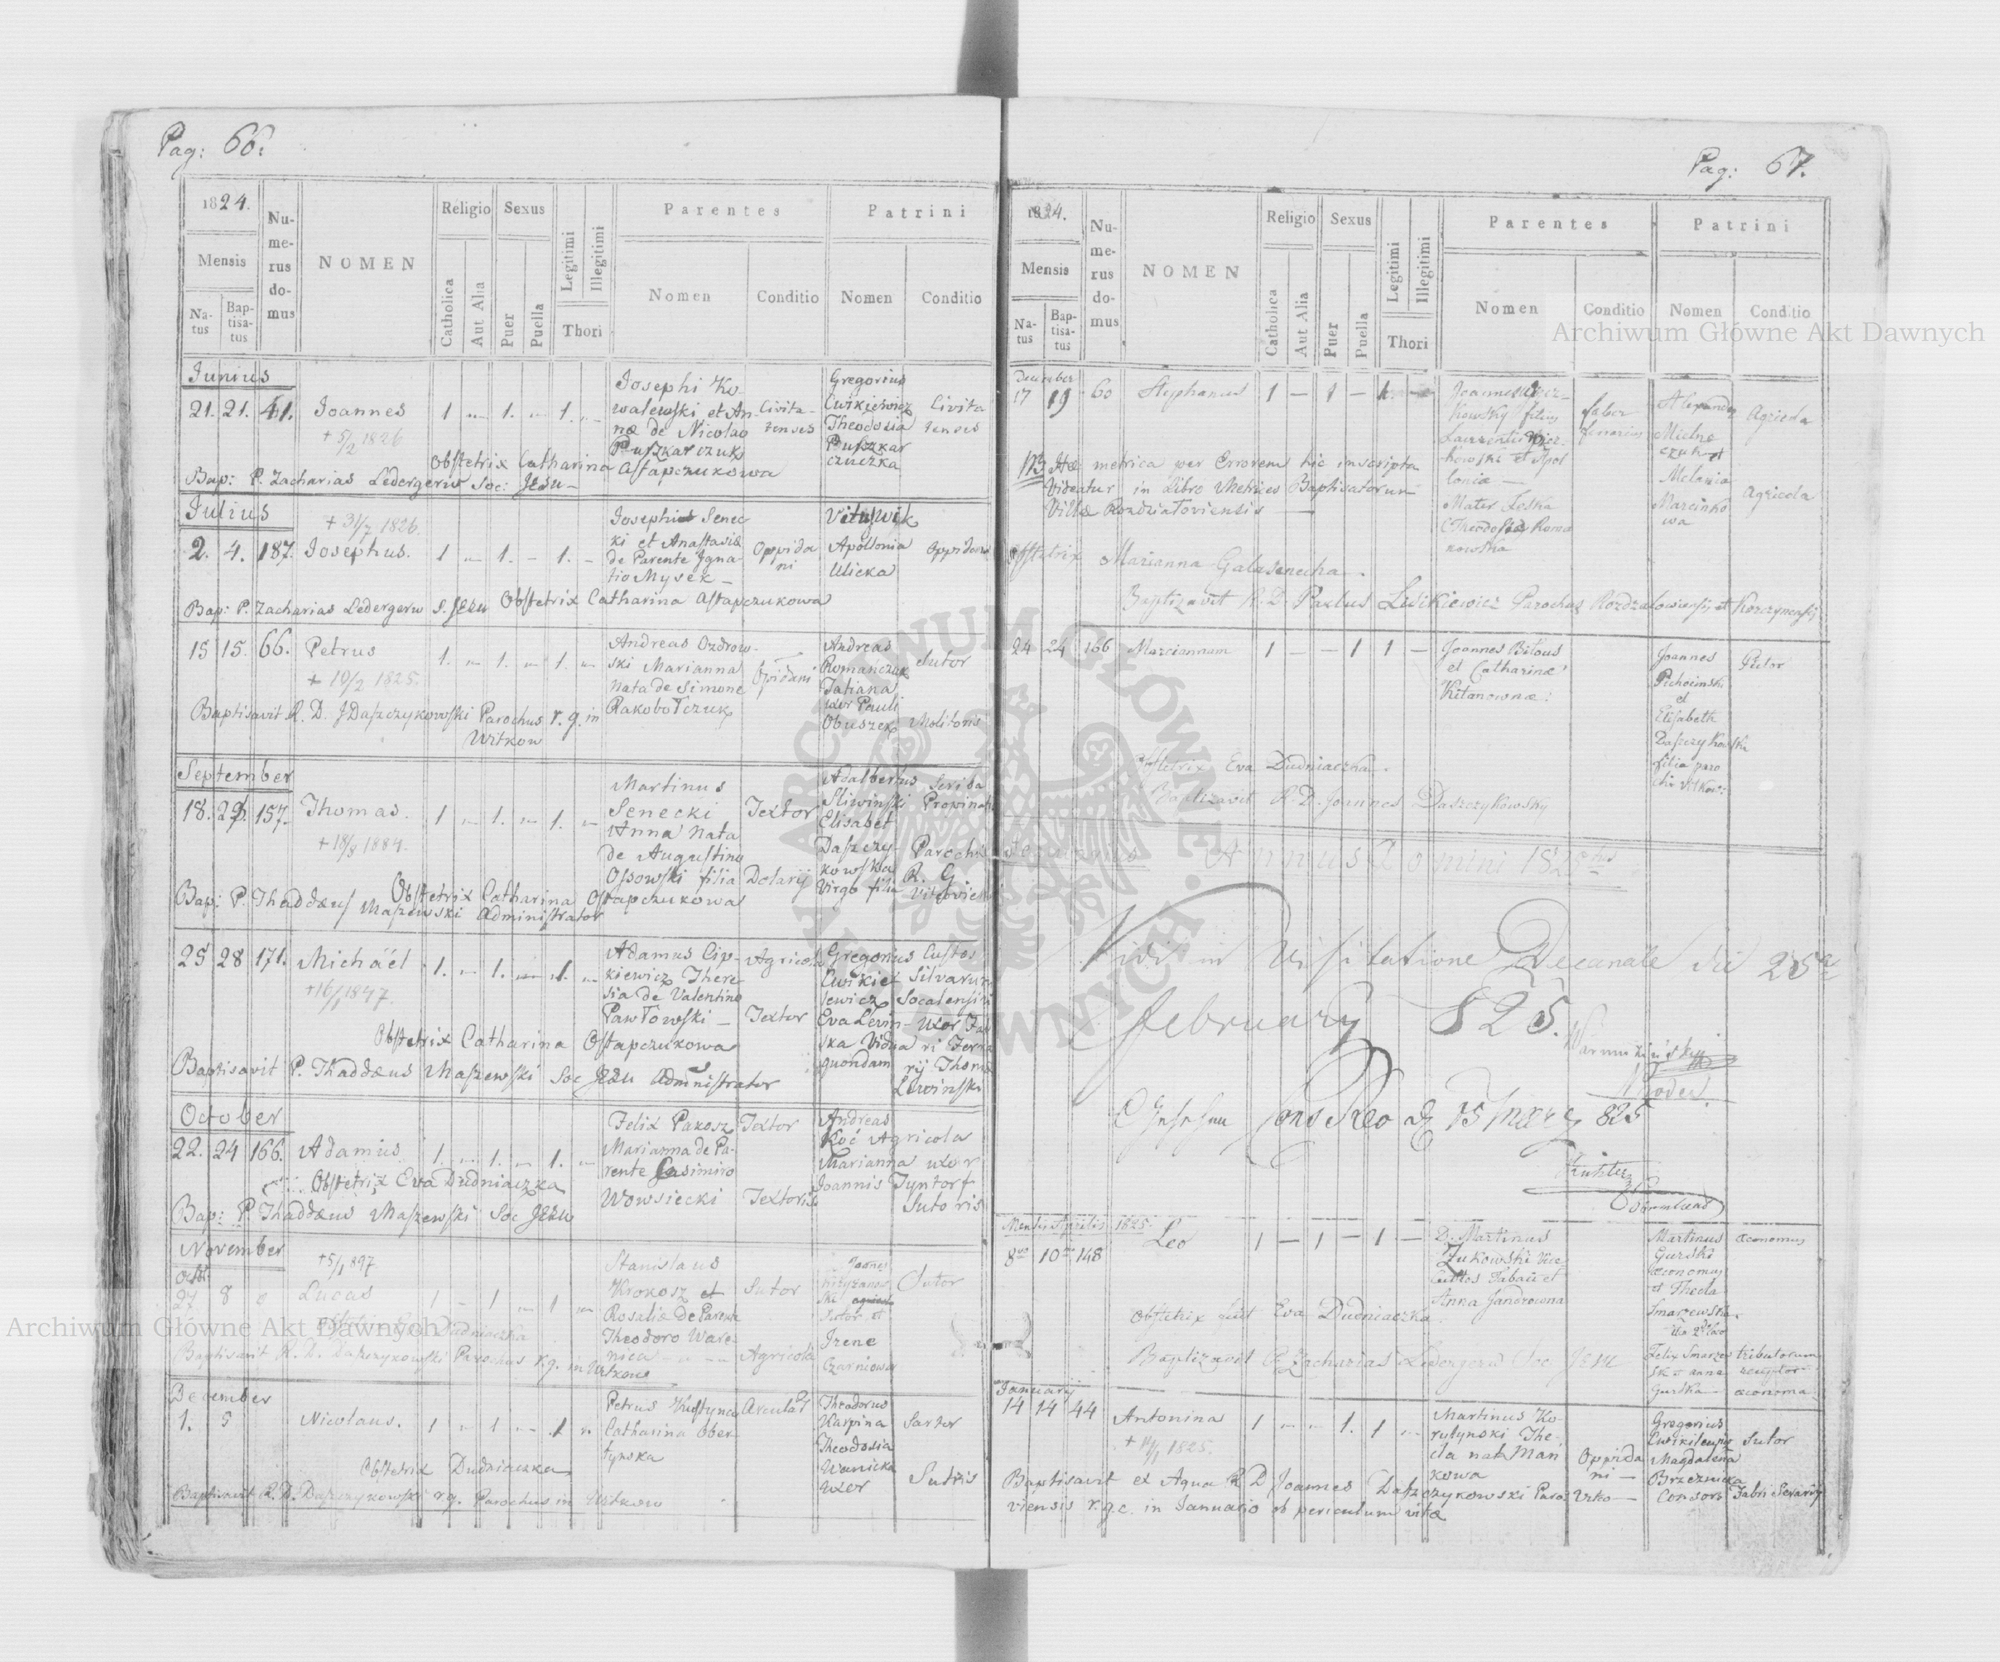 Pag: 66.
1824.
Mensis
Natus
Baptisatus
Numerus domus
NOMEN
Religio
Catholica
Aut Alia
Sexus
Puer
Puella
Legitimi
Illegitimi
Thori
Parentes
Nomen
Conditio
Patrini
Nomen
Conditio
Junius
21. 21. 41. Joannes 1 — 1. — 1. —
+ 5/2 1826
Josephi Ko
walewski et An-
næ de Nicolao
Puszkarczuk
Civita-
tenses
Gregorius
Cwikiewicz
Theodosia
Puszkar
czuczka
Civita
tenses
Obstetrix Catharina Astapczukowa
Bap: P. Zacharias Ledergerw Soc: Jesu —
Julius
+ 31/7 1826
2. 4. 187. Josephus. 1 — 1. — 1. —
Josephus Senec
ki et Anastasia
de Parente Igna
tio Mysek —
Oppida
ni
Vitus Wik
Apollonia
Ulicka
Oppidani
Bap: P. Zacharias Ledergerw S. Jesu Obstetrix Catharina Astapczukowa
15 15. 66. Petrus 1. — 1. — 1. —
+ 10/2 1825.
Andreas Ozdrow-
ski Marianna
Nata de Simone
Rakobołczuk
Opidani
Andreas
Romańczuk
Tatiana
uxor Pauli
Obuszek
Sutor
Molitoris
Baptisavit R. D. J Daszczykowski Parochus r. g. in
Witkow
September
18. 157. Thomas. 1 — 1. — 1. —
+ 18/3 1884.
Martinus
Senecki
Anna Nata
de Augustino
Ossowski filia
Textor
Dolarij
Adalbertus
Sliwinski
Elisabet
Daszczy-
kowska
Virgo filia
Scriba
Parochi
R. G.
Obstetrix Catharina Ostapczukowa
Bap: P. Thaddæus Maszewski Administrator
25 28 171. Michaël 1. — 1. — 1. —
+16/1 1847.
Adamus Cip-
kiewicz There
sia de Valentino
Pawłowski —
Agricola
Textor
Gregorius
Cwikie
Eva Lewin-
ska Vidua
quondam
Custos
Silvarum
Socalensium
Uxor
Thoma
Lewinski
Obstetrix Catharina Ostapczukowa
Baptisavit P. Thaddæus Maszewski Soc Jesu Administrator
October
22. 24 166. Adamus 1. — 1. — 1. —
Felix Pakosz
Marianna de Pa-
rente Casimiro
Wowsiecki
Textor
Textoris
Andreas
Koć Agricola
Marianna uxor
Joannis Tyntorf
Sutoris
Obstetrix Eva Dudniaczka
Bap: P. Thaddæus Maszewski Soc Jesu
November
+5/1 897
27 8 Lucas 1 — 1 — 1 —
Stanislaus
Krokosz et
Rosalia De Parente
Theodoro Ware-
nica — — —
Sutor
Agricola
Sutor et
Irene
Czarniowa
Sutor
Dudniaczka
Baptisavit R. D. Daszczykowski Parochus r. g. in Wi
tkow
December
1. 5 Nicolaus. 1 — 1 — 1 —
Petrus
Catharina Ober-
tynska
Theodorus
Karpina
Theodosia
Wanicka
Uxor
Sartor
Sutoris
Obstetrix Dudniaczka
Baptisavit R. D. Daszczykowski r. g. Parochus in Witkow
Pag: 67.
1824.
Mensis
Natus
Baptisatus
Numerus domus
NOMEN
Religio
Catholica
Aut Alia
Sexus
Puer
Puella
Legitimi
Illegitimi
Thori
Parentes
Nomen
Conditio
Patrini
Nomen
Conditio
December
17 19 60 Stephanus 1 — 1 —
faber
ferrarius
Alexander
Mielni
czuk et
Melania
Marcinko
wa
Agricola
Agricola
Mater Leska
Theodosia Roma
nowska
NB Hæc metrica per Errorem hic inscripta
Videatur in Libro Metrices Baptisatorum
Villæ Rozdziałoviensis —
Obstetrix Marianna Galasenecka.
Baptizavit R. D. Paulus Lisikiewicz Parochus
24 24 166 Mariannam 1 — — 1 1 —
Joannes Bilous
et Catharinæ
Kitanownæ:
Joannes
et
Elisabeth
Daszczykowska
filia paro
chi Vitkow:
Sutor
Obstetrix Eva Dudniaczka.
Baptizavit R. D. Joannes Daszczykowsky
Annus Domini 1825tus
Vidi in Visitatione Decanale die 25a
february 825.
Gesehen 15 März 825
Mensis Aprilis 1825.
8va 10ma 148 Leo 1 — 1 — 1 —
D. Martinus
Zukowski Vice
Custos Tabaci et
Anna Jandrowna
Martinus
Gurski
œconomus
et Thecla
Smarzewska.
œconomus
Felix Smarzew
ski et Anna
Gurska
tributorum
receptor
œconoma
Obstetrix fuit Eva Dudniaczka.
Baptizavit P. Zacharias Ledergerw Soc. Jesu
January
14 14 44 Antonina 1 — — 1. 1 —
+ 14/1 1825.
Martinus Ko-
rytynski The-
cla nata Man
kowa
Oppida
ni —
Gregorius
Magdalena
Brzeznicka
Consors
Sutor
Fabri
Baptisavit ex Aqua R D Joannes Daszczykowski Paro: Vitko —
viensis r. g. c. in Januario ob periculum vitæ
Archiwum Główne Akt Dawnych
Archiwum Główne Akt Dawnych
ARCHIWUM GŁÓWNE AKT DAWNYCH